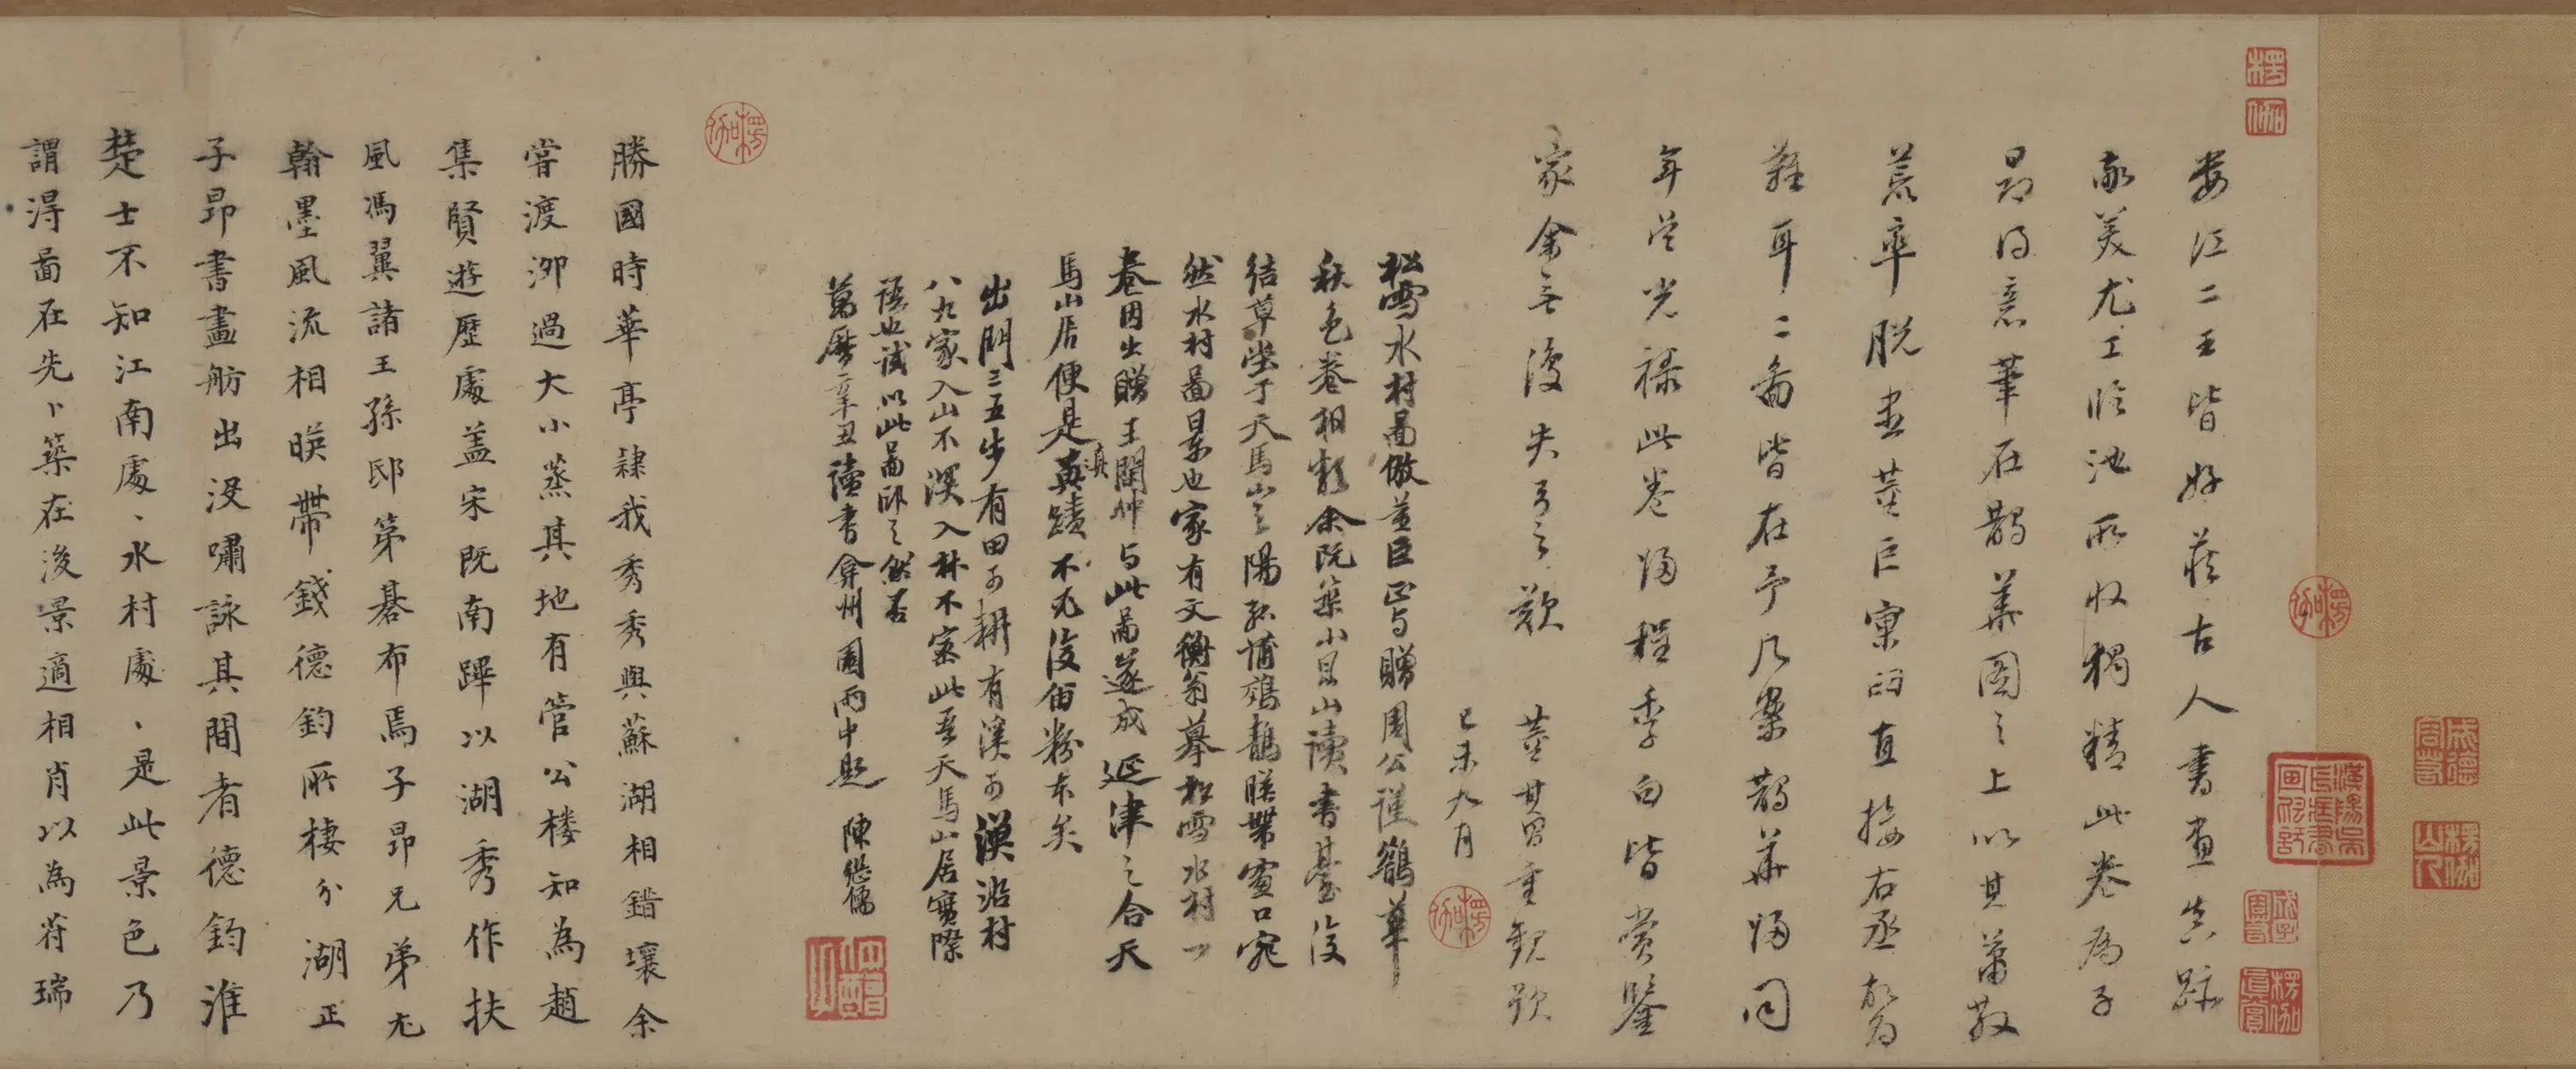 婁江二王皆好藏古人書画真跡
敬美尤工臨池所收獨精此卷為子
昂得意筆在鵲華圖之上以其蕭散
荒率脫盡董巨窠臼直接右丞故為
難耳二圖皆在予几案鵲華歸同
年吳光祿此卷歸程季白皆賞鑒
家余無復失弓之歎 董其昌重觀題
己未九月
松雪水村圖倣董巨正与贈周公謹鵲華
秋色卷相類余既築小崑山讀書臺復
結草堂于天馬山之陽菰蒲鴻鵠映帶窗口宛
然水村圖景也家有文衡翁摹松雪水村一
卷因出贈王閒仲与此圖遂成延津之合天
馬山居便是真蹟不无復留粉本矣
出門三五步有田可耕有溪可漁沿村
八九家入山不深入林不密此吾天馬山居實際
語也試以此圖印之然否
萬曆辛丑讀書弇州園雨中題 陳繼儒
勝國時華亭隸我秀秀與蘇湖相錯壤余
嘗渡泖過大小蒸其地有管公樓知為趙
集賢遊歷處蓋宋既南蹕以湖秀作扶
風馮翼諸王孫邸第碁布焉子昂兄弟尤
翰墨風流相映帶錢德鈞所棲分湖正
子昂書畫舫出沒嘯詠其間者德鈞淮
楚士不知江南處、水村處、是此景色乃
謂得圖在先卜築在後景適相肖以為符瑞